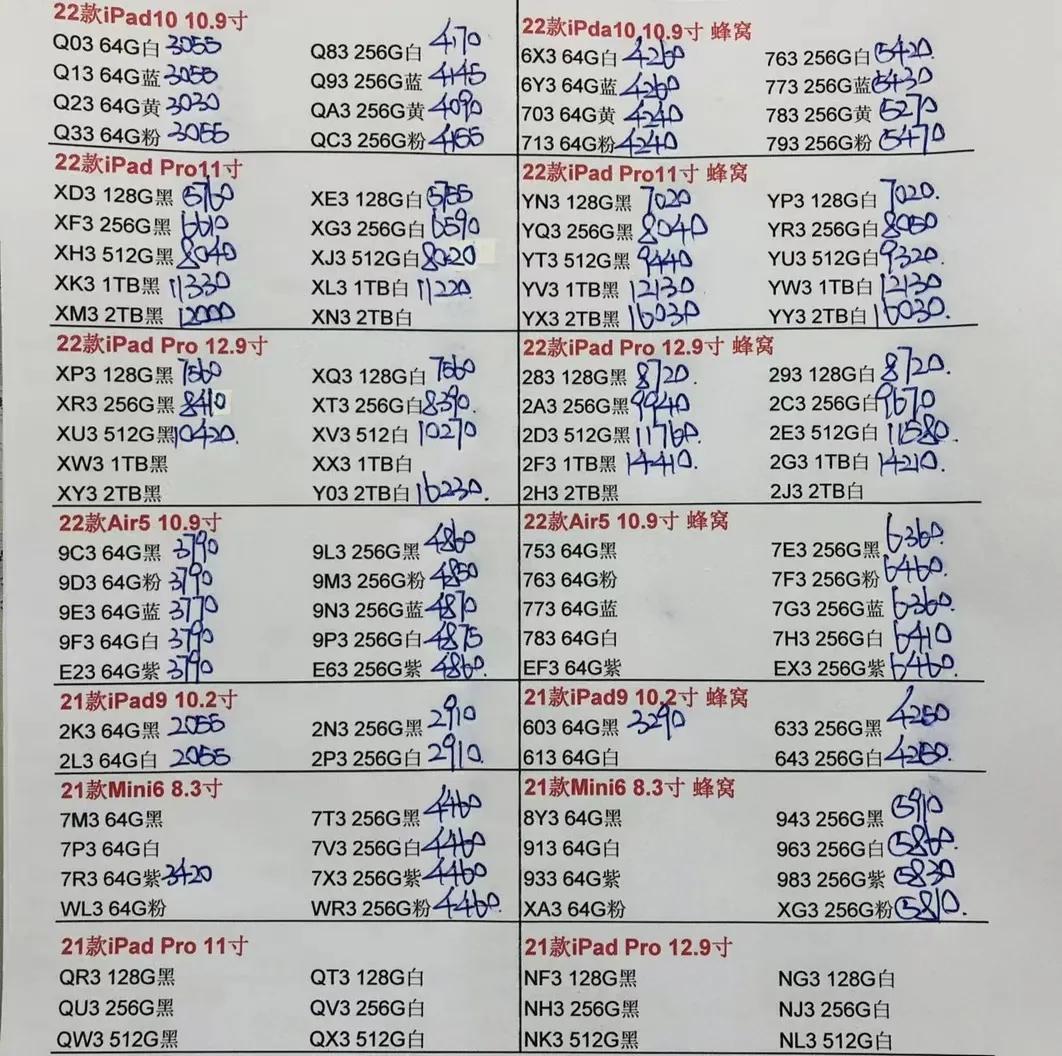 22款iPad10 10.9寸
Q03 64G白 3055 Q83 256G白 4170
Q13 64G蓝 3055 Q93 256G蓝 4145
Q23 64G黄 3030 QA3 256G黄 4090
Q33 64G粉 3055 QC3 256G粉 4155
22款iPda10 10.9寸 蜂窝
6X3 64G白 4260 763 256G白 5420
6Y3 64G蓝 4260 773 256G蓝 5430
703 64G黄 4240 783 256G黄 5270
713 64G粉 4240 793 256G粉 5470
22款iPad Pro11寸
XD3 128G黑 5760 XE3 128G白 5755
XF3 256G黑 6610 XG3 256G白 6590
XH3 512G黑 8040 XJ3 512G白 8020
XK3 1TB黑 11330 XL3 1TB白 11220
XM3 2TB黑 12000 XN3 2TB白
22款iPad Pro11寸 蜂窝
YN3 128G黑 7020 YP3 128G白 7020.
YQ3 256G黑 8040 YR3 256G白 8050
YT3 512G黑 9440 YU3 512G白 9320.
YV3 1TB黑 12130 YW3 1TB白 12130
YX3 2TB黑 16030 YY3 2TB白 16030.
22款iPad Pro 12.9寸
XP3 128G黑 7560 XQ3 128G白 7560
XR3 256G黑 8410 XT3 256G白 8390.
XU3 512G黑 10420. XV3 512白 10270
XW3 1TB黑 XX3 1TB白
XY3 2TB黑 Y03 2TB白 16230.
22款iPad Pro 12.9寸 蜂窝
283 128G黑 8720. 293 128G白 8720.
2A3 256G黑 9940 2C3 256G白 9670
2D3 512G黑 11760. 2E3 512G白 11580.
2F3 1TB黑 14410. 2G3 1TB白 14210.
2H3 2TB黑 2J3 2TB白
22款Air5 10.9寸
9C3 64G黑 3790 9L3 256G黑 4860
9D3 64G粉 3790 9M3 256G粉 4850
9E3 64G蓝 3770 9N3 256G蓝 4870
9F3 64G白 3790 9P3 256G白 4875
E23 64G紫 3790 E63 256G紫 4860.
22款Air5 10.9寸 蜂窝
753 64G黑 7E3 256G黑 6360.
763 64G粉 7F3 256G粉 6460.
773 64G蓝 7G3 256G蓝 6360.
783 64G白 7H3 256G白 6410
EF3 64G紫 EX3 256G紫 6460.
21款iPad9 10.2寸
2K3 64G黑 2055 2N3 256G黑 2910
2L3 64G白 2055 2P3 256G白 2910.
21款iPad9 10.2寸 蜂窝
603 64G黑 3290 633 256G黑 4250
613 64G白 643 256G白 4250.
21款Mini6 8.3寸
7M3 64G黑 7T3 256G黑 4460
7P3 64G白 7V3 256G白 4460
7R3 64G紫 3420 7X3 256G紫 4460
WL3 64G粉 WR3 256G粉 4460.
21款Mini6 8.3寸 蜂窝
8Y3 64G黑 943 256G黑 5910
913 64G白 963 256G白 5860.
933 64G紫 983 256G紫 5830
XA3 64G粉 XG3 256G粉 5810.
21款iPad Pro 11寸
QR3 128G黑 QT3 128G白
QU3 256G黑 QV3 256G白
QW3 512G黑 QX3 512G白
21款iPad Pro 12.9寸
NF3 128G黑 NG3 128G白
NH3 256G黑 NJ3 256G白
NK3 512G黑 NL3 512G白